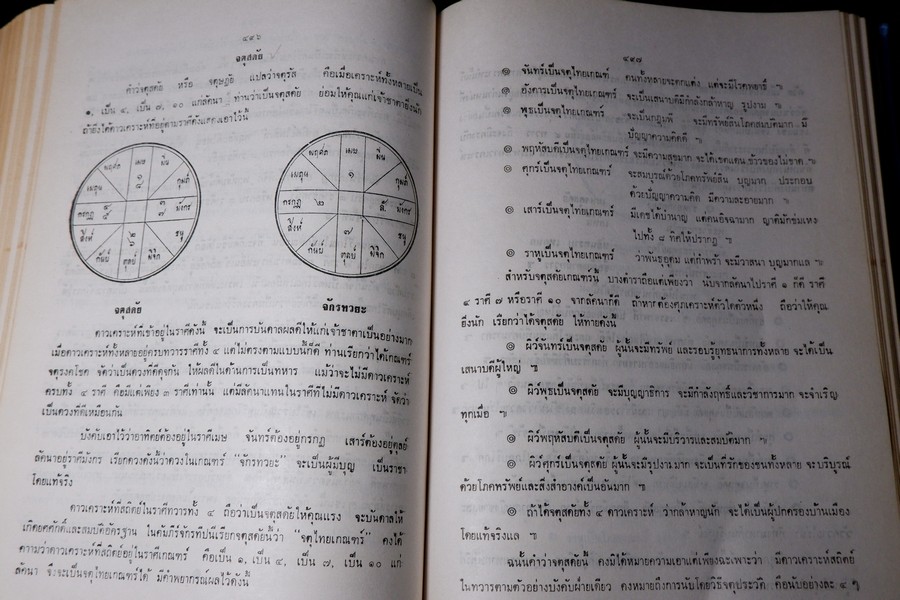 ๔๙๖
จตุสดัย
คำว่าจตุสดัย หรือ จตุษฎัย แปลว่าจตุรัส คือเมื่อเคราะห์ทั้งหลายเป็น
๑, เป็น ๔, เป็น ๗, ๑๐ แก่ลัคนา ท่านว่าเป็นจตุสดัย ย่อมให้คุณแก่เจ้าชาตายิ่งนัก
ถ้ายังได้ดาวเคราะห์ที่อยู่ตามราศีดังแสดงเอาไว้นี้
พฤศภ
เมษ
มีน
เมถุน
กุมภ์
กรกฎ
มังกร
สิงห์
ธนู
กันย์
ตุลย์
พิจิก
พฤศภ
เมษ
มีน
เมถุน
๑
กุมภ์
กรกฎ
๒
ลั
มังกร
สิงห์
๗
ธนู
กันย์
ตุลย์
พิจิก
จตุสดัย
จักรทวยะ
ดาวเคราะห์ที่เข้าอยู่ในราศีดังนี้ จะเป็นการบันดาลผลดีให้แก่เจ้าชาตาเป็นอย่างมาก
เมื่อดาวเคราะห์ทั้งหลายอยู่ครบทวารราศีทั้ง ๔ แต่ไม่ตรงตามแบบนี้ก็ดี ท่านเรียกว่าได้เกณฑ์
จตุรงคโชค จัดว่าเป็นดวงที่ดีดุจกัน ให้ผลดีในด้านการเป็นทหาร แม้ว่าจะไม่มีดาวเคราะห์
ครบทั้ง ๔ ราศี คือมีแต่เพียง ๓ ราศีเท่านั้น แต่มีลัคนาแทนในราศีที่ไม่มีดาวเคราะห์ จัดว่า
เป็นดวงที่ดีเหมือนกัน
บังคับเอาไว้ว่าอาทิตย์ต้องอยู่ในราศีเมษ จันทร์ต้องอยู่กรกฎ เสาร์ต้องอยู่ตุลย์
ลัคนาอยู่ราศีมังกร เรียกดวงดังนี้ว่าดวงในเกณฑ์ “จักรทวยะ” จะเป็นผู้มีบุญ เป็นราชา
โดยแท้จริง
ดาวเคราะห์ที่สถิตย์ในราศีทวารทั้ง ๔ ถือว่าเป็นจตุสดัยให้คุณแรง จะบันดาลให้
เกิดยศศักดิ์และสมบัติอัครฐาน ในคัมภีร์จักรทีปนีเรียกจตุสดัยนี้ว่า “จตุไทยเกณฑร์” คงได้
ความว่าดาวเคราะห์ที่สถิตย์อยู่ในราศีเกณฑร์ คือเป็น ๑, เป็น ๔, เป็น ๗, เป็น ๑๐ แก่
ลัคนา จึงจะเป็นจตุไทยเกณฑร์ได้ มีคำพยากรณ์ผลไว้ดังนี้
๔๙๗
๏ จันทร์เป็นจตุไทยเกณฑร์ คนทั้งหลายจะตกแต่ง แต่จะมีโรคพยาธิ์ ฯ
๏ อังคารเป็นจตุไทยเกณฑร์ จะเป็นเสนาบดีมีกำลังกล้าหาญ รูปงาม ฯ
๏ พุธเป็นจตุไทยเกณฑร์ จะเป็นกฎุมพี จะมีทรัพย์สินโภคสมบัติมาก มี
ปัญญาความคิดดี ฯ
๏ พฤหัสบดีเป็นจตุไทยเกณฑร์ จะมีความสุขมาก จะได้เขตแดน ข้าวของไม่ขาด ฯ
๏ ศุกร์เป็นจตุไทยเกณฑร์ จะสมบูรณ์ด้วยโภคทรัพย์สิน บุญมาก ประกอบ
ด้วยปัญญาความคิด มีความละอายมาก ฯ
๏ เสาร์เป็นจตุไทยเกณฑร์ มีเดชได้ชำนาญ แต่คนอิจฉามาก ญาติมักข่มเหง
ไปทั้ง ๘ ทิศให้ปรากฏ ฯ
๏ ราหูเป็นจตุไทยเกณฑร์ ว่าพันธุอุดม แต่กำพร้า จะมีวาสนา บุญมากแล ฯ
สำหรับจตุสดัยเกณฑร์นี้ บางตำราถือแต่เพียงว่า นับจากลัคนาไปราศี ๑ ก็ดี ราศี
๔ ราศี ๗ หรือราศี ๑๐ จากลัคนาก็ดี ถ้าหากต้องศุภเคราะห์ตัวใดตัวหนึ่ง ถือว่าให้คุณ
ยิ่งนัก เรียกว่าได้จตุสดัย ให้ทายดังนี้
๏ ผิว์จันทร์เป็นจตุสดัย ผู้นั้นจะมีทรัพย์ และรอบรู้ยุทธนาการทั้งหลาย จะได้เป็น
เสนาบดีผู้ใหญ่ ฯ
๏ ผิว์พุธเป็นจตุสดัย จะมีบุญญาธิการ จะมีกำลังฤทธิ์และวิชาการมาก จะจำเริญ
ทุกเมื่อ ฯ
๏ ผิว์พฤหัสบดีเป็นจตุสดัย ผู้นั้นจะมีบริวารและสมบัติมาก ฯ
๏ ผิว์ศุกร์เป็นจตุสดัย ผู้นั้นจะมีรูปงามมาก จะเป็นที่รักของชนทั้งหลาย จะบริบูรณ์
ด้วยโภคทรัพย์และสิ่งสำอางค์เป็นอันมาก ฯ
๏ ถ้าได้จตุสดัยทั้ง ๔ ดาวเคราะห์ ว่ากล้าหาญนัก จะได้เป็นผู้ปกครองบ้านเมือง
โดยแท้จริงแล ฯ
ฉนั้นคำว่าจตุสดัยนี้ คงมิได้หมายความเอาแต่เพียงฉะเพาะว่า มีดาวเคราะห์สถิตย์
ในทวารตามตัวอย่างบังคับฝ่ายเดียว คงหมายถึงการนับโดยวิธีจตุประวัติ คือนับอย่างละ ๔ ๆ